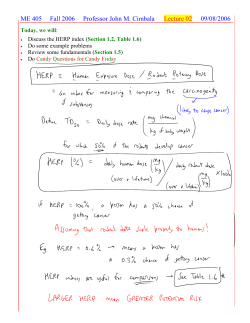 ME 405 Fall 2006 Professor John M. Cimbala Lecture 02 09/08/2006
Today, we will:
• Discuss the HERP index (Section 1.2, Table 1.6)
• Do some example problems
• Review some fundamentals (Section 1.5)
• Do Candy Questions for Candy Friday
HERP = Human Exposure Dose / Rodent Potency Dose
= an index for measuring & comparing the carcinogenity of substances
(likely to cause cancer)
Define TD50 = Daily dose rate (mg chemical / kg of body weight)
for which 50% of the rodents develop cancer
HERP (%) = daily human dose (mg/kg) (over a lifetime) / daily rodent dose (mg/kg) (over a lifetime) × 100%
if HERP = 100%, a person has a 50% chance of
getting cancer
Assuming that rodent data scale properly to humans!
Eg HERP = 0.6% → means a person has
a 0.3% chance of getting cancer
HERP values are useful for comparisons → See Table 1.6
LARGER HERP means GREATER POTENTIAL RISK